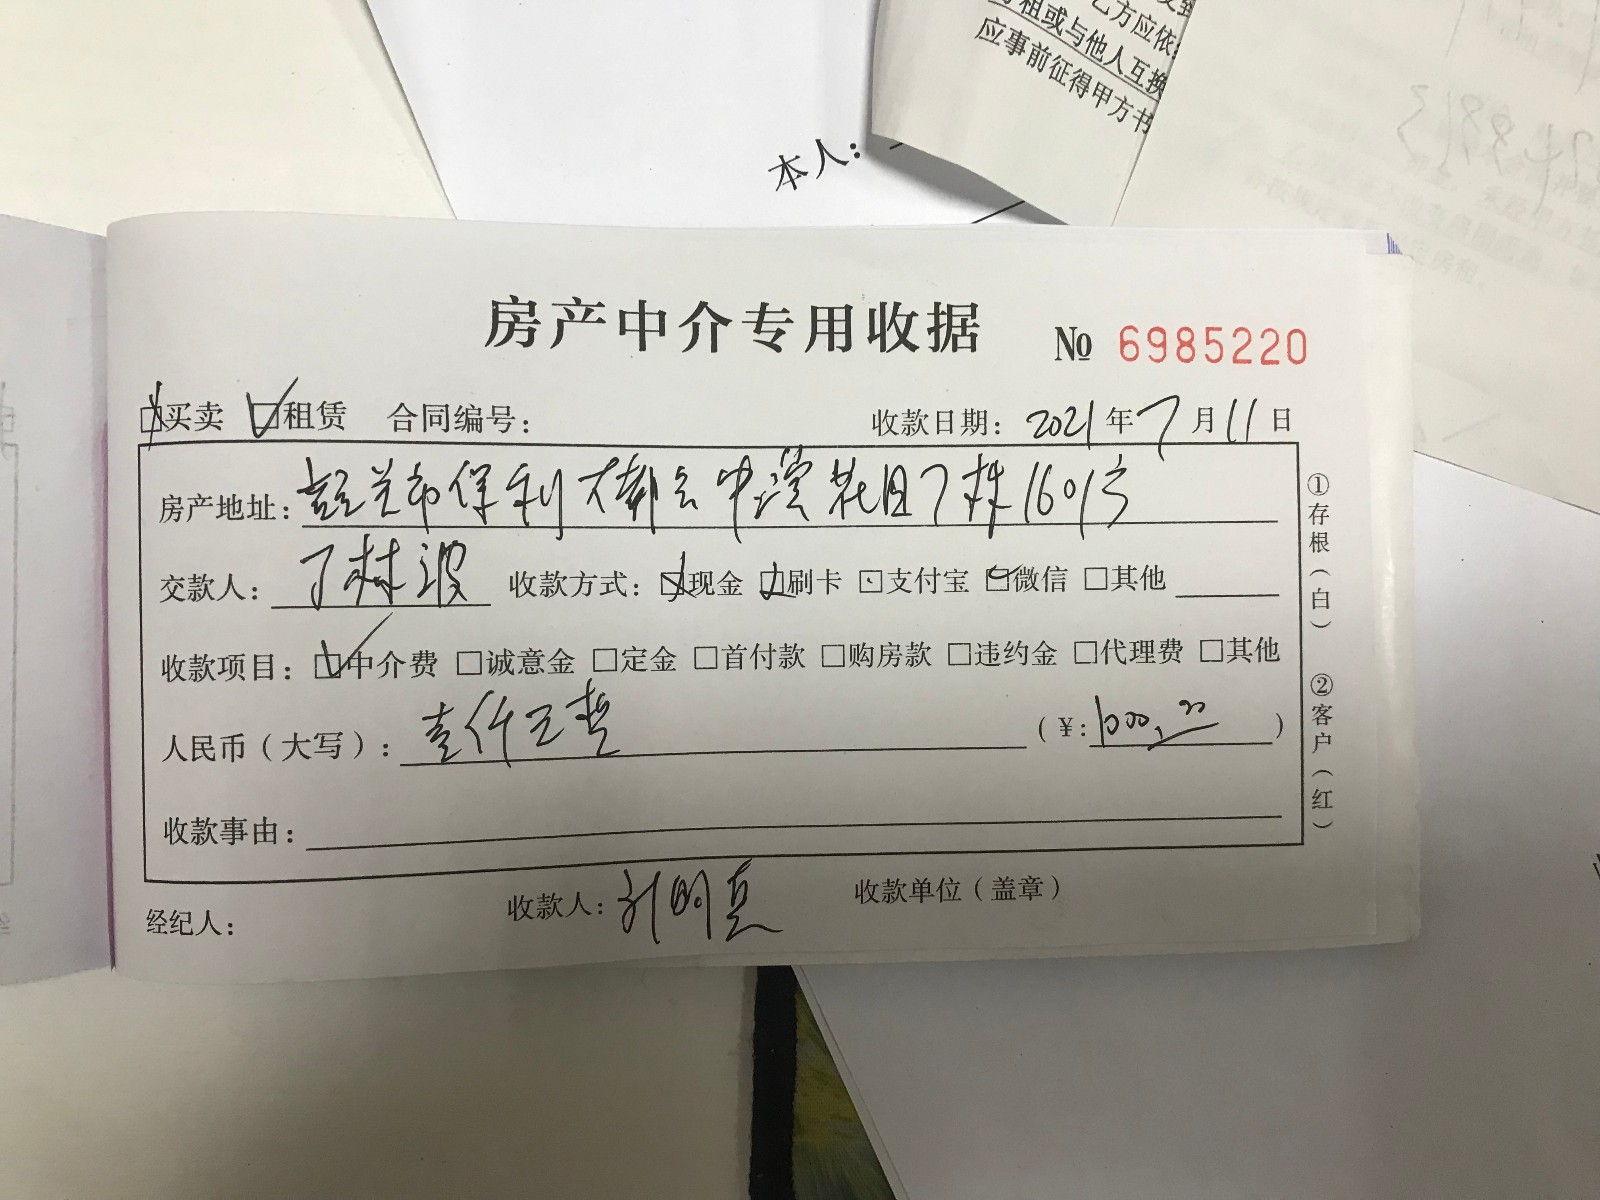 乙方应依
租或与他人互换
应事前征得甲方书
本人:
房产中介专用收据 № 6985220
□买卖 ☑租赁 合同编号: 收款日期: 2021年7月11日
房产地址: 嘉兴市保利大都会中滢花园7栋1601房
交款人: 丁林波 收款方式: □现金 □刷卡 □支付宝 □微信 □其他
收款项目: ☑中介费 □诚意金 □定金 □首付款 □购房款 □违约金 □代理费 □其他
人民币(大写): 壹仟元整 (¥: 1000.00)
收款事由:
经纪人: 收款人: 明真 收款单位(盖章)
①存根(白) ②客户(红)